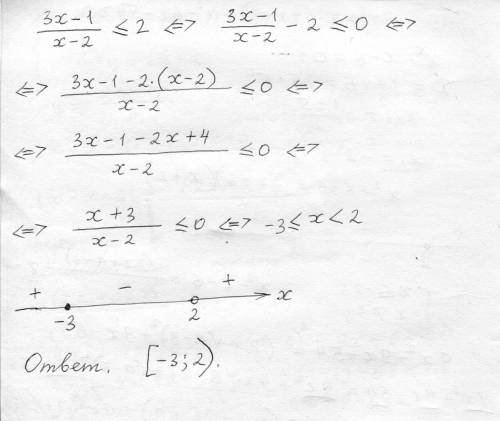 (3x-1)/(x-2) ≤ 2 <=> (3x-1)/(x-2) - 2 ≤ 0 <=>
<=> (3x-1-2·(x-2))/(x-2) ≤ 0 <=>
<=> (3x-1-2x+4)/(x-2) ≤ 0 <=>
<=> (x+3)/(x-2) ≤ 0 <=> -3 ≤ x < 2
+ - +
-3 2 x
Ответ. [-3; 2).